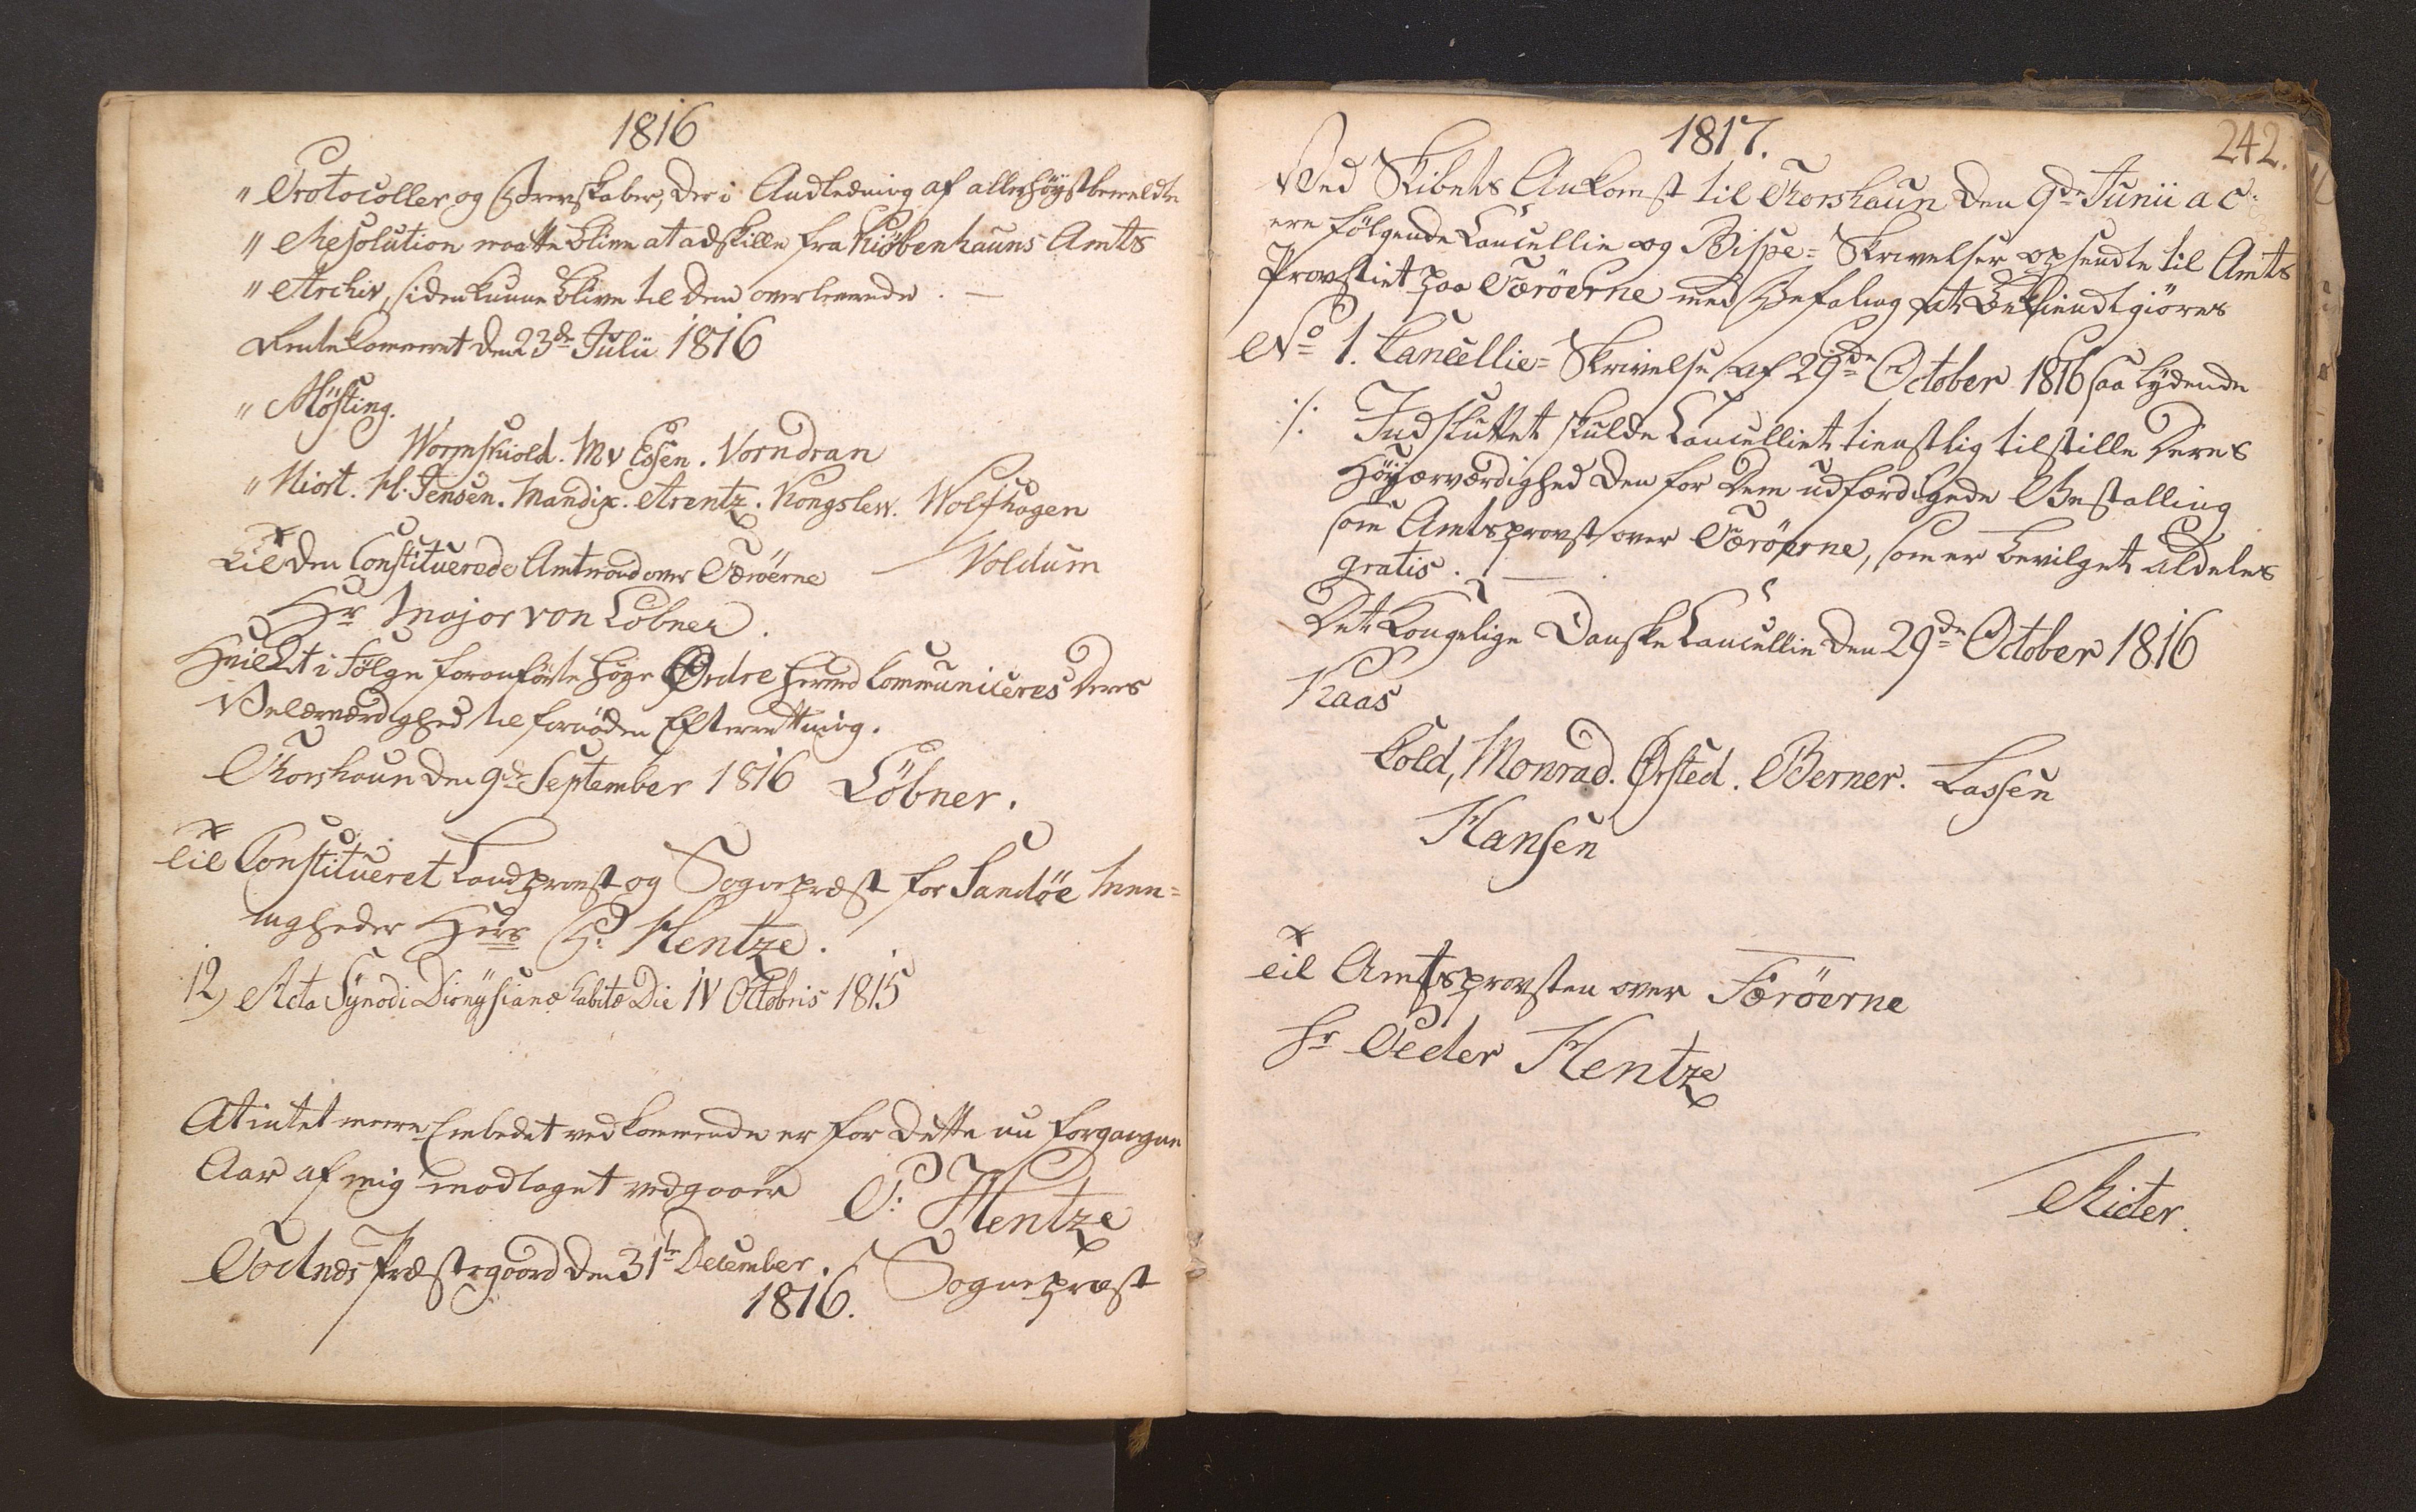 1816
" Protocoller og Brevskaber, der i Andledning af allerhöystbemeldte
" Resolution maatte blive at adskille fra Kiöbenhauns Amts
" Archiv, siden kunne blive til dem overleverede. —
Rentekammeret den 23de Julii 1816
" Mösting.
Wormskiold. M v Essen. Vorndran
" Hiort. H. Jensen. Mandix. Arentz. Kongslew. Wolfhagen
Til den Constituerede Amtmand over Færöerne — Voldum
Hr Major von Löbner.
Hvilket i Fölge foranförte höye Ordre herved Communiceres Deres
Velærværdighed til fornöden Efterretning.
Thorshaun den 9de September 1816 Löbner.
Til Constitueret Landprovst og Sognepræst for Sandöe Men=
ingheder Herr P. Hentze.
12) Acta Synodi Dionysianæ habitæ Die IV Octobris 1815
At intet meere Embedet vedkommende er for dette nu forgangne
Aar af mig modtaget vedgaaer P: Hentze
Todnæs Præstegaard den 31te December Sognepræst
1816.
1817.
242.
Ved Skibets Ankomst til Thorshaun den 9de Junii a c:
ere fölgende Cancellie og Bispe= Skrivelser opsendte til Amts
Provstiet paa Færöerne med Befaling at bekiendtgiöres
No 1. Cancellie= Skrivelse af 29de October 1816 saa lydende
./. Indsluttet skulde Cancelliet tienstlig tilstille Deres
Höyærværdighed den for Dem udfærdigede Bestalling
som Amtsprovst over Færöerne, som er bevilget aldeles
gratis. —
Det Kongelige Danske Cancellie den 29de October 1816
Kaas
Cold, Monrad. Ørsted. Berner. Lassen
Hansen
Til Amtsprovsten over Færöerne
Hr Peder Hentze
Ritter.